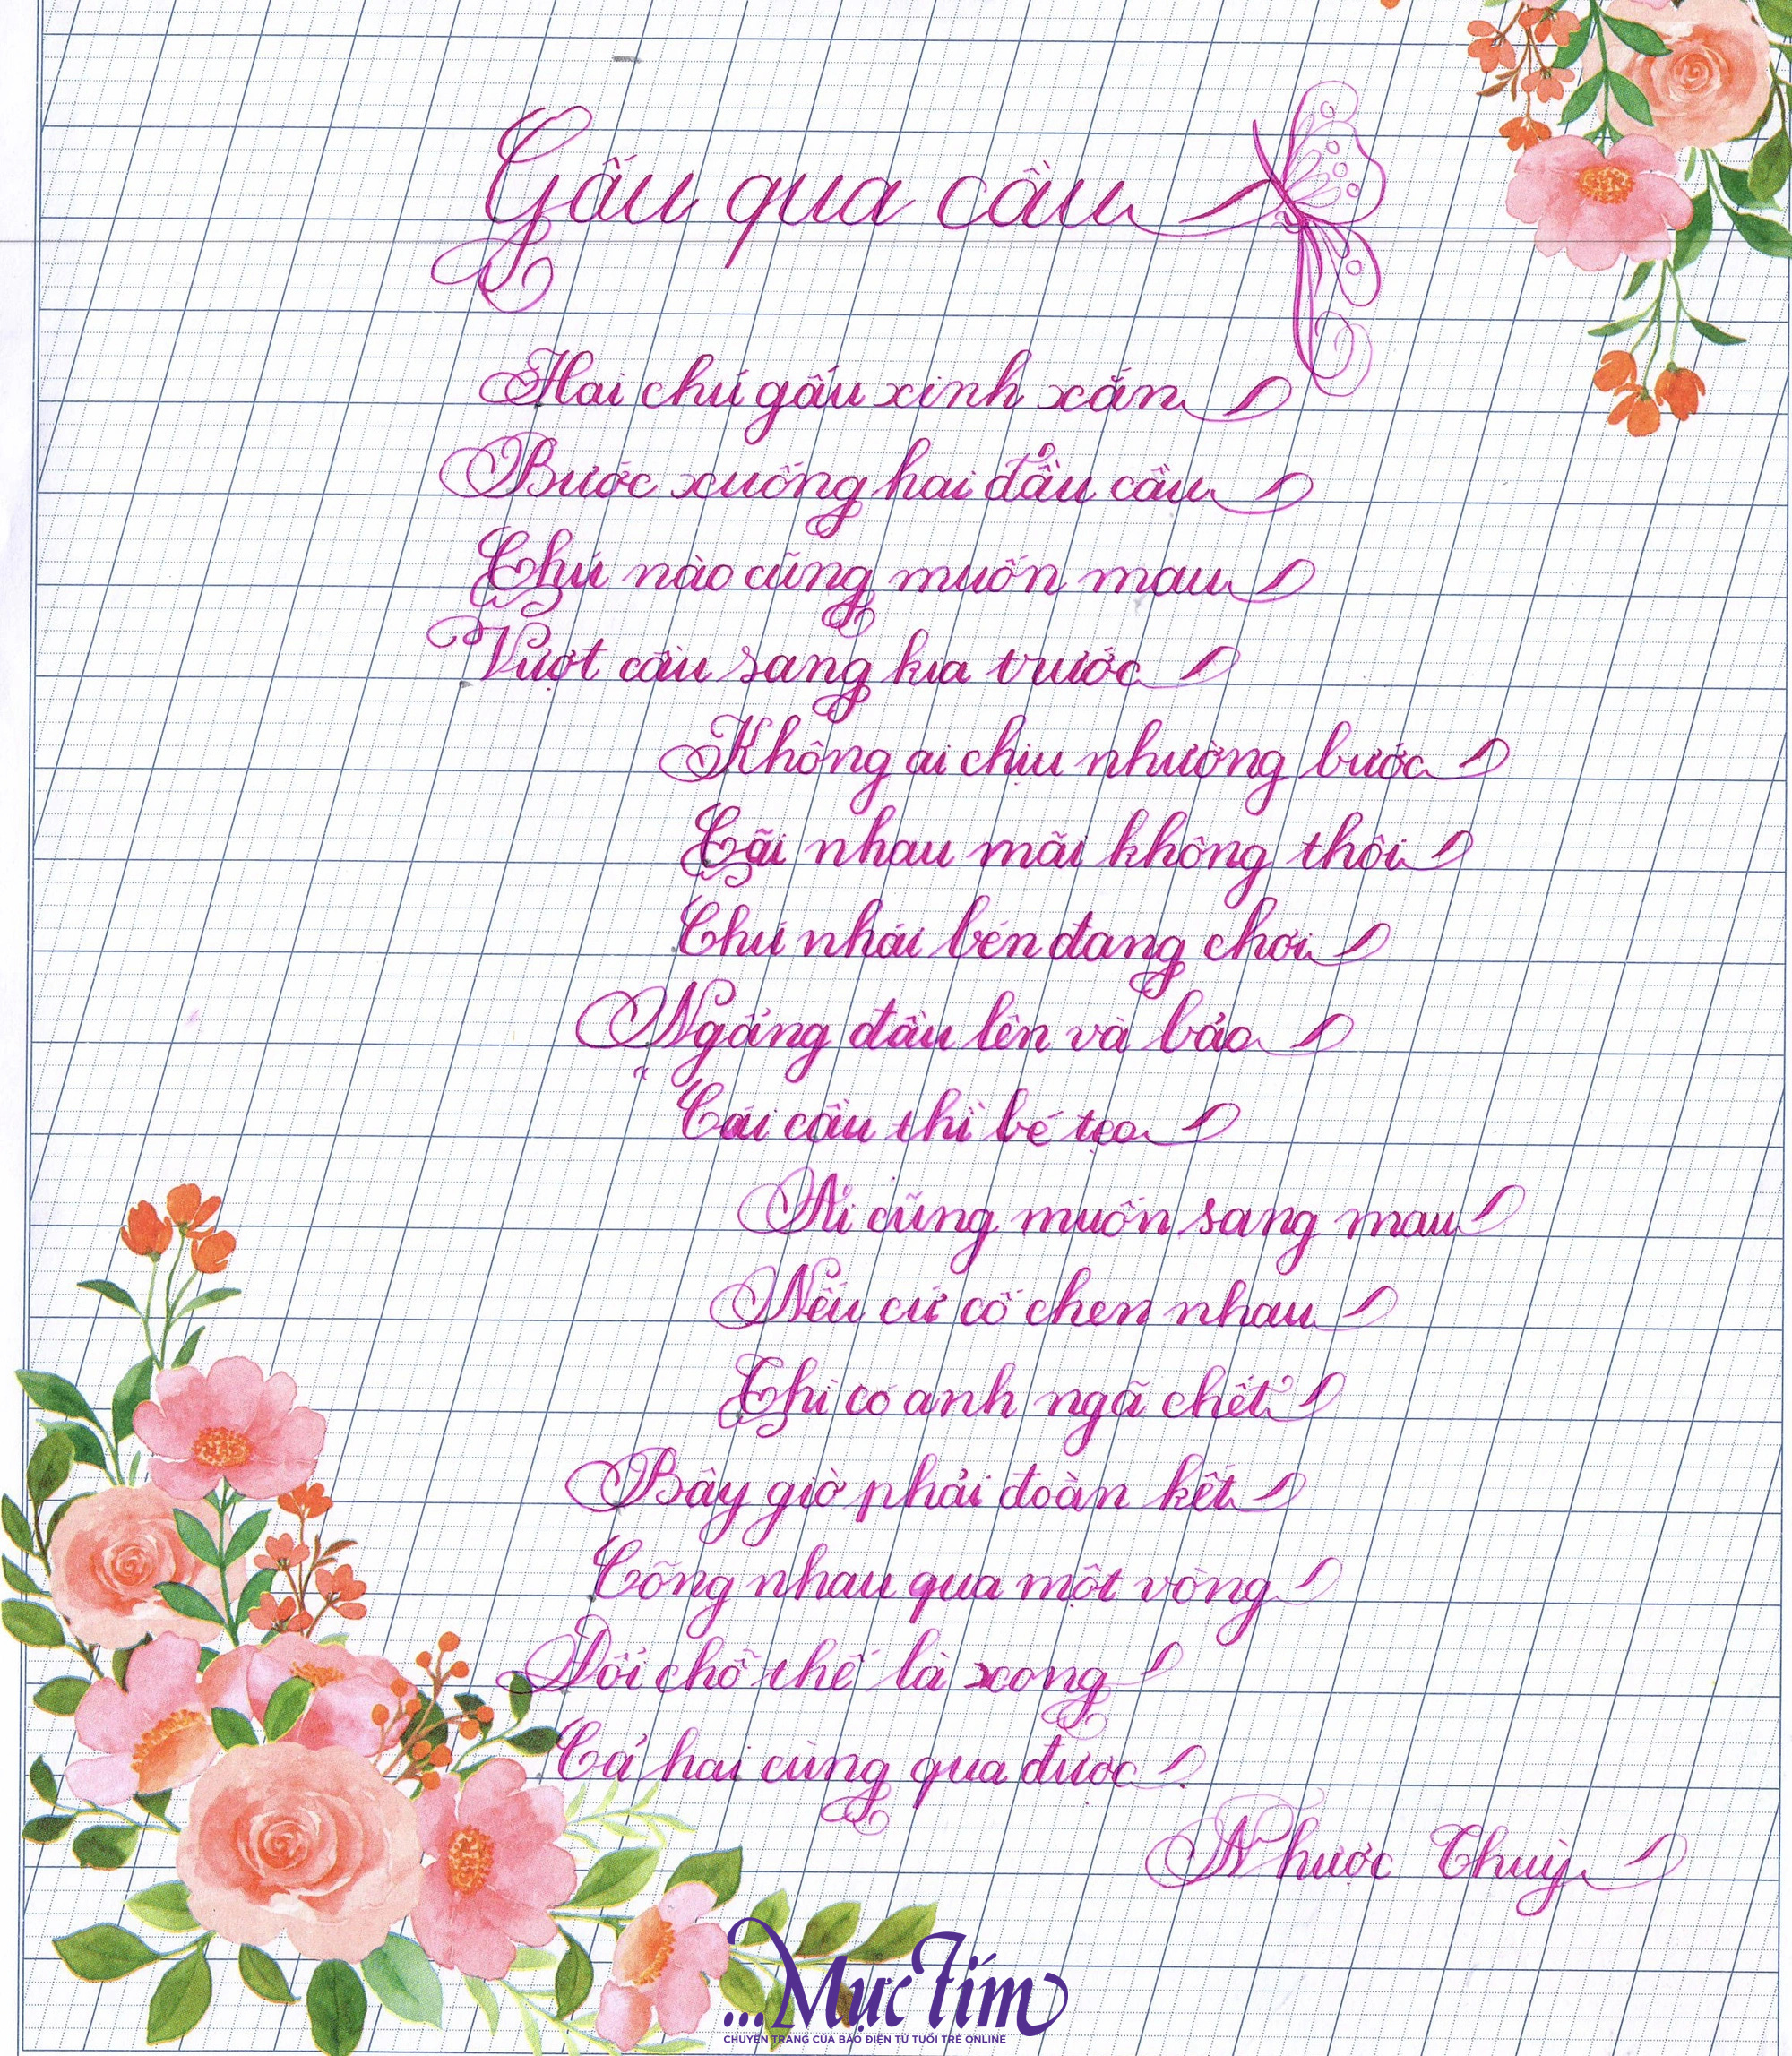 Gấu qua cầu
Hai chú gấu xinh xắn
Bước xuống hai đầu cầu
Chú nào cũng muốn mau
Vượt cầu sang kia trước
Không ai chịu nhường bước
Cãi nhau mãi không thôi
Chú nhái bén đang chơi
Ngẩng đầu lên và bảo
"Cái cầu thì bé tẹo
Ai cũng muốn sang mau
Nếu cứ cố chen nhau
Thì có anh ngã chết
Bây giờ phải đoàn kết
Cõng nhau qua một vòng
Đổi chỗ thế là xong
Cả hai cùng qua được.
Nhược Thuỷ
...Mực Tím
CHUYÊN TRANG CỦA BÁO ĐIỆN TỬ TUỔI TRẺ ONLINE